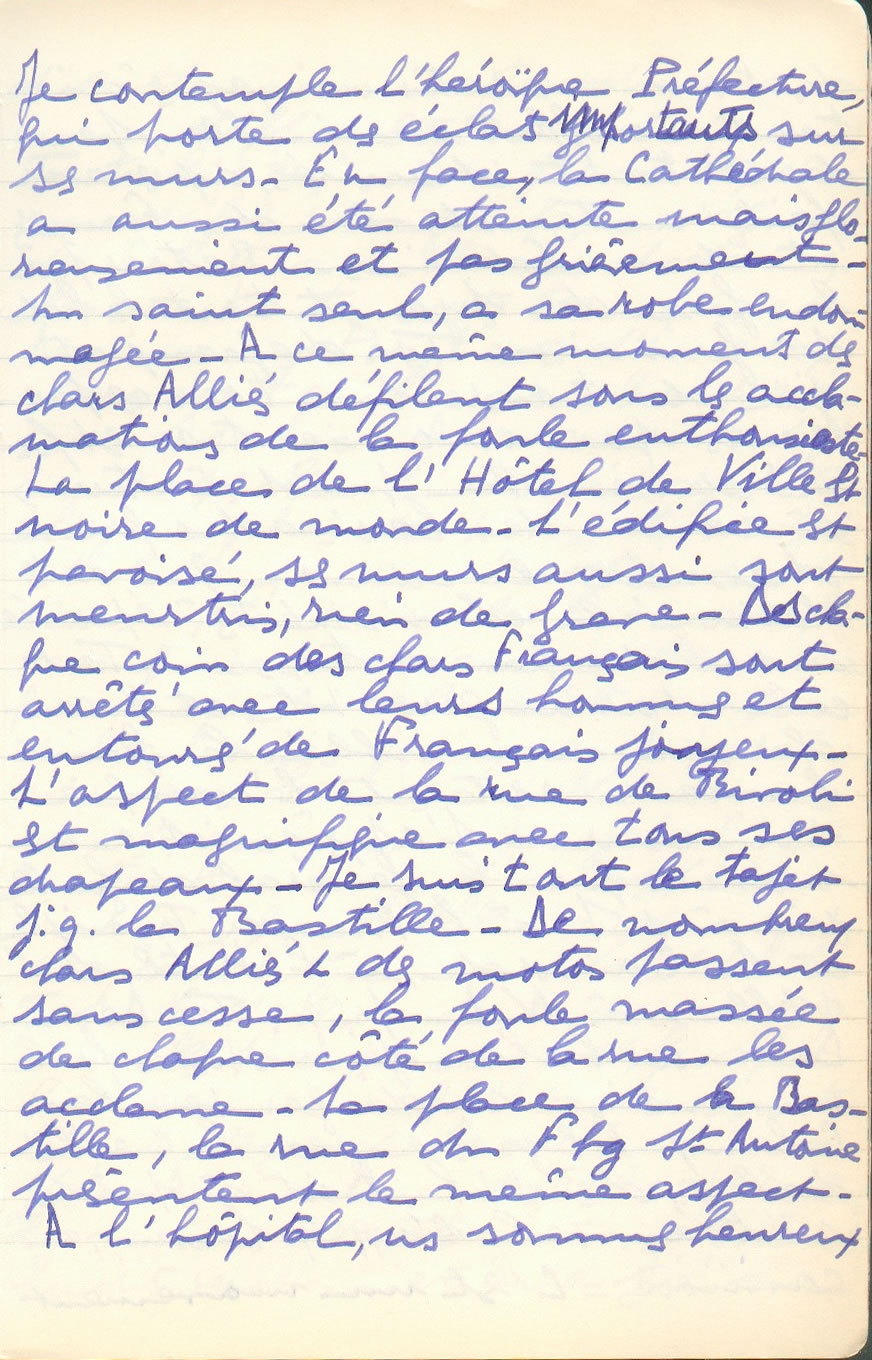 Je contemple l'héroïque Préfecture,
qui porte des éclats importants sur
ses murs - En face, la Cathédrale
a aussi été atteinte mais glo-
rieusement et pas grièvement -
Un saint seul, a sa robe endom
magée - A ce même moment des
chars Alliés défilent sous les accla-
mations de la foule enthousiaste -
La place de l'Hôtel de Ville est
noire de monde - L'édifice est
pavoisé, ses murs aussi sont
meurtris, rien de grave - Des cha-
que coin des chars Français sont
arrêtés avec leurs hommes et
entourés de Français joyeux -
L'aspect de la rue de Rivoli
est magnifique avec tous ses
drapeaux - Je suis tout le trajet
j.q. la Bastille - De nombreux
chars Alliés & des motos passent
sans cesse, la foule massée
de chaque côté de la rue les
acclame - La place de la Bas-
tille, la rue du Fbg St Antoine
présentent le même aspect -
A l'hôpital, ns sommes heureux